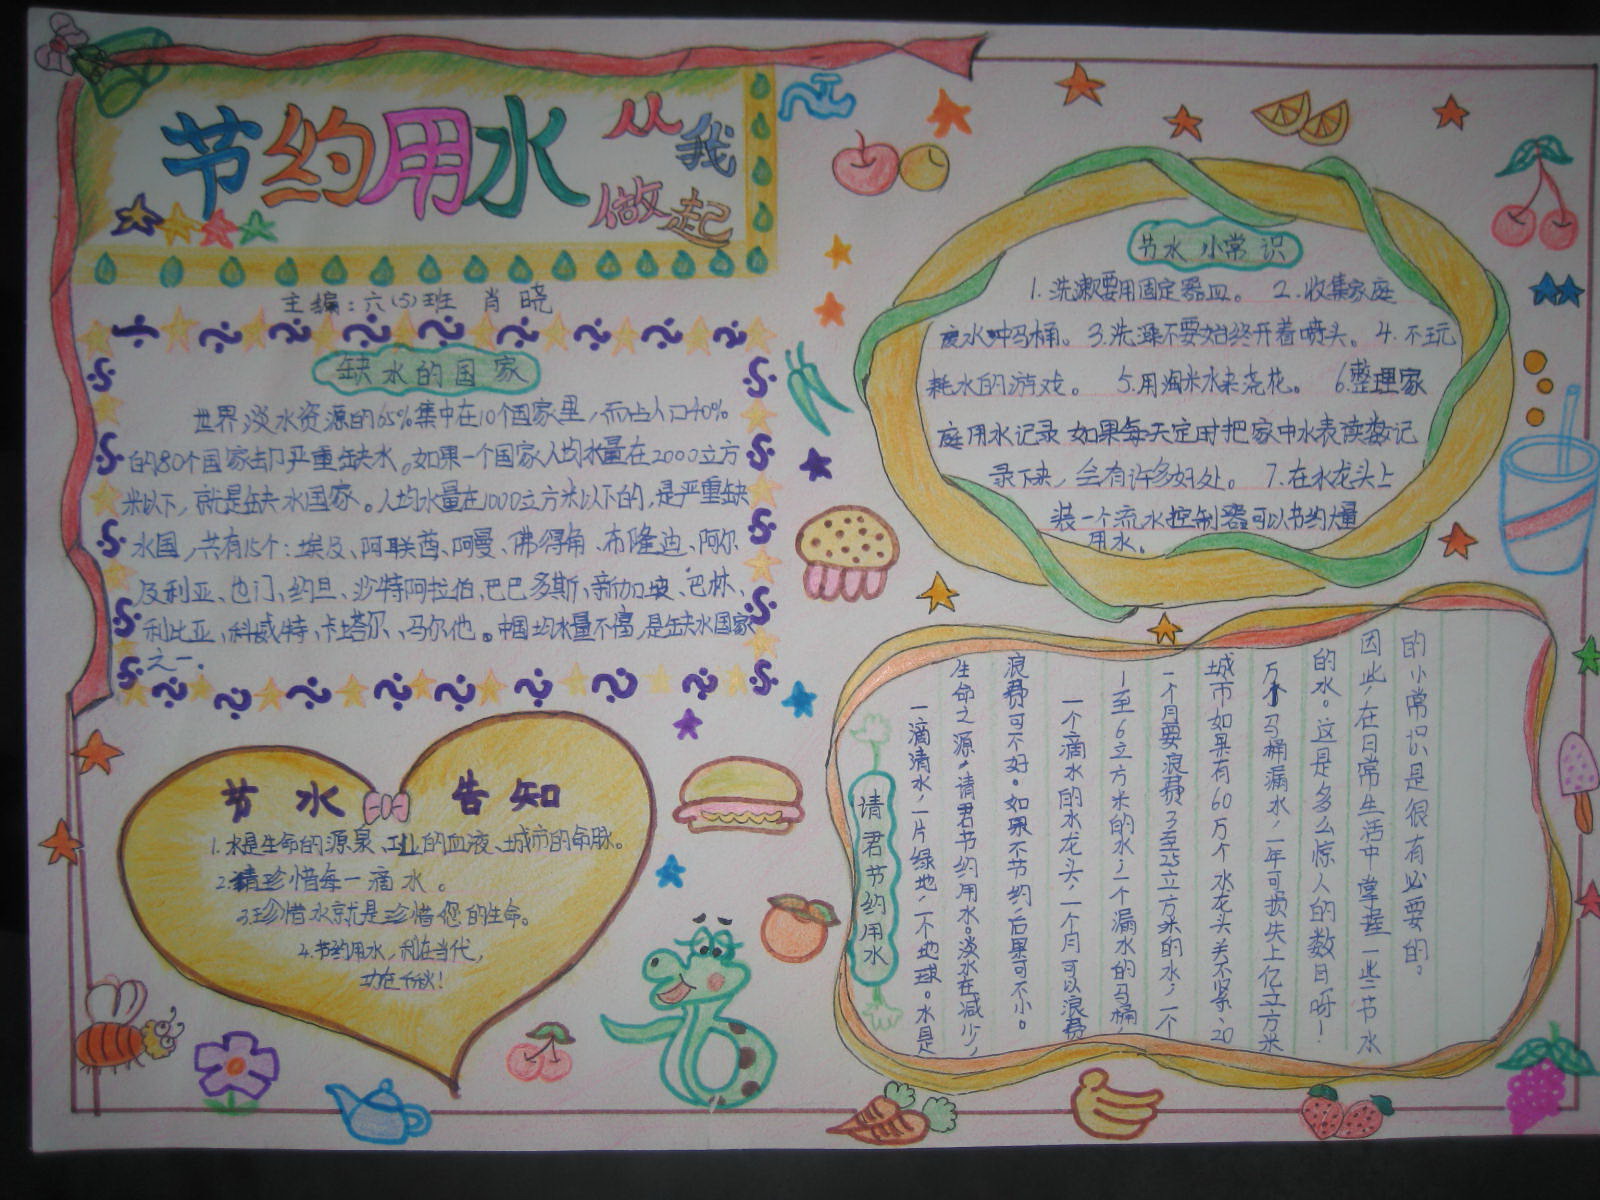 节约用水
从我
做起
主编：六(5)班 肖晓
缺水的国家
世界淡水资源的65%集中在10个国家里，而占人口40%
的80个国家却严重缺水。如果一个国家人均水量在2000立方
米以下，就是缺水国家。人均水量在1000立方米以下的，是严重缺
水国，共有15个：埃及、阿联酋、阿曼、佛得角、布隆迪、阿尔
及利亚、也门、约旦、沙特阿拉伯、巴巴多斯、新加坡、巴林、
利比亚、科威特、卡塔尔、马尔他。中国均水量不富，是缺水国家
之一。
节水 告知
1.水是生命的源泉、工业的血液、城市的命脉。
2.请珍惜每一滴水。
3.珍惜水就是珍惜您的生命。
4.节约用水，利在当代，
功在千秋！
节水 小常识
1.洗漱要用固定器皿。 2.收集家庭
废水冲马桶。3.洗澡不要始终开着喷头。4.不玩
耗水的游戏。 5.用淘米水来浇花。 6.整理家
庭用水记录 如果每天定时把家中水表读数记
录下来，会有许多好处。 7.在水龙头上
装一个流水控制器可以节约大量
用水。
请君节约用水
一滴清水，一片绿地，一个地球。水是
生命之源，请君节约用水。淡水在减少，
浪费可不好。如果不节约，后果可不小。
一个滴水的水龙头，一个月可以浪费
1至6立方米的水，一个漏水的马桶，
一个月要浪费3至25立方米的水，一个
城市如果有60万个水龙头关不紧、20
万个马桶漏水，一年可损失上亿立方米
的水。这是多么惊人的数目呀！
因此，在日常生活中掌握一些节水
的小常识是很有必要的。